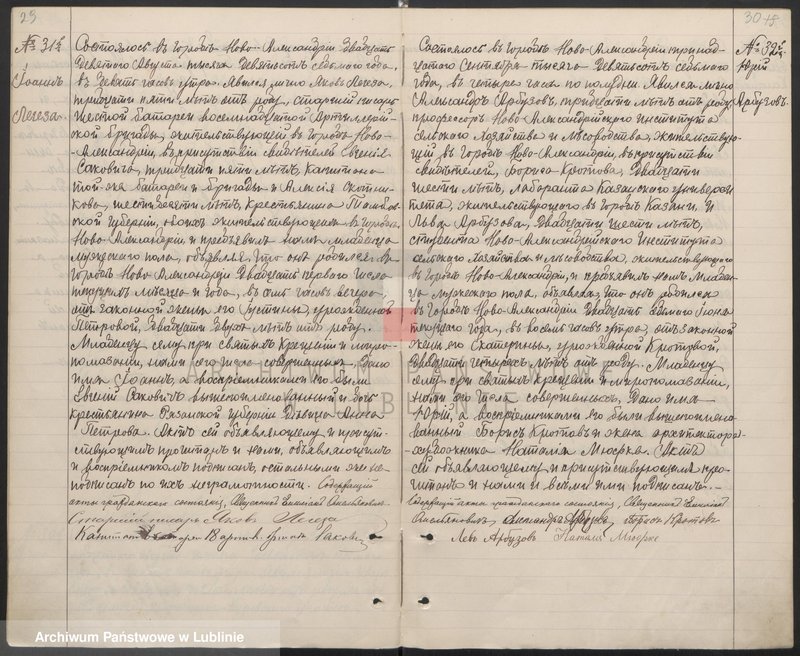 29
№ 31й
Іоаннъ
Легеза.
Состоялось въ городѣ Ново-Александріи двадцать
девятаго Августа тысяча девятьсотъ седьмого года,
въ девять часовъ утра. Явился лично Яковъ Легеза,
тридцати пяти лѣтъ отъ роду, старшій писарь
шестой батареи восемнадцатой Артиллерій-
ской бригады, жительствующей въ городѣ Ново-
Александріи, въ присутствіи свидѣтелей Евгенія
Саковича, тридцати пяти лѣтъ, Капитана
той-же батареи и бригады и Алексія
шестидесяти лѣтъ, крестьянина Тамбов-
ской губерніи, обоихъ жительствующихъ въ городѣ
Ново-Александріи и предъявилъ намъ младенца
мужескаго пола, объявляя, что онъ родился въ
городѣ Ново Александріи двадцать перваго числа
текущихъ мѣсяца и года, въ семь часовъ вечера,
отъ законной жены его Іустины, урожденной
Петровой, двадцати двухъ лѣтъ отъ роду.
Младенцу сему при святыхъ крещеніи и миро-
помазаніи, нами сего числа совершенныхъ, дано
имя Іоаннъ, а воспріемниками его были
Евгеній Саковичъ вышепоименованный и дочь
крестьянина Рязанской губерніи дѣвица Анна
Петрова. Актъ сей объявляющему и присут-
ствующимъ прочитанъ и нами, объявляющимъ
и воспріемникомъ подписанъ, остальными же не
подписанъ по ихъ неграмотности. Содержащій
акты гражданскаго состоянія, Священникъ
Старшій писарь Яковъ Легеза
Капитанъ 18 артил. бригады Саковичъ
30
Состоялось въ городѣ Ново-Александріи тринад-
цатаго Сентября тысяча девятьсотъ седьмого
года, въ четыре часа по полудни. Явился лично
Александръ Арбузовъ, тридцати лѣтъ отъ роду,
профессоръ Ново-Александрійскаго института
сельскаго хозяйства и лѣсоводства, жительствую-
щій въ городѣ Ново-Александріи, въ присутствіи
свидѣтелей, Бориса Кротова, двадцати
шести лѣтъ, лаборанта Казанскаго универси-
тета, жительствующаго въ городѣ Казани, и
Льва Арбузова, двадцати шести лѣтъ,
студента Ново-Александрійскаго Института
сельскаго хозяйства и лѣсоводства, жительствующаго
въ городѣ Ново-Александріи, и предъявилъ намъ младен-
ца мужескаго пола, объявляя, что онъ родился
въ городѣ Ново-Александріи двадцать седьмого Іюня
текущаго года, въ восемь часовъ утра, отъ законной
жены его Екатерины, урожденной Кротовой,
двадцати четырехъ лѣтъ отъ роду. Младенцу
сему при святыхъ крещеніи и миропомазаніи,
нами сего числа совершенныхъ, дано имя
Юрій, а воспріемниками его были вышепоимено-
ванный Борисъ Кротовъ и жена архитектора-
художника Наталія Мюрке. Актъ
сей объявляющему и присутствующимъ про-
читанъ и нами и всѣми ими подписанъ.
Содержащій акты гражданскаго состоянія, Священникъ
Александръ Арбузовъ Борисъ Кротовъ
Левъ Арбузовъ Наталія Мюрке
№ 32й
Юрій
Арбузовъ.
ARCHIWUM PAŃSTWOWE
W LUBLINIE
Archiwum Państwowe w Lublinie